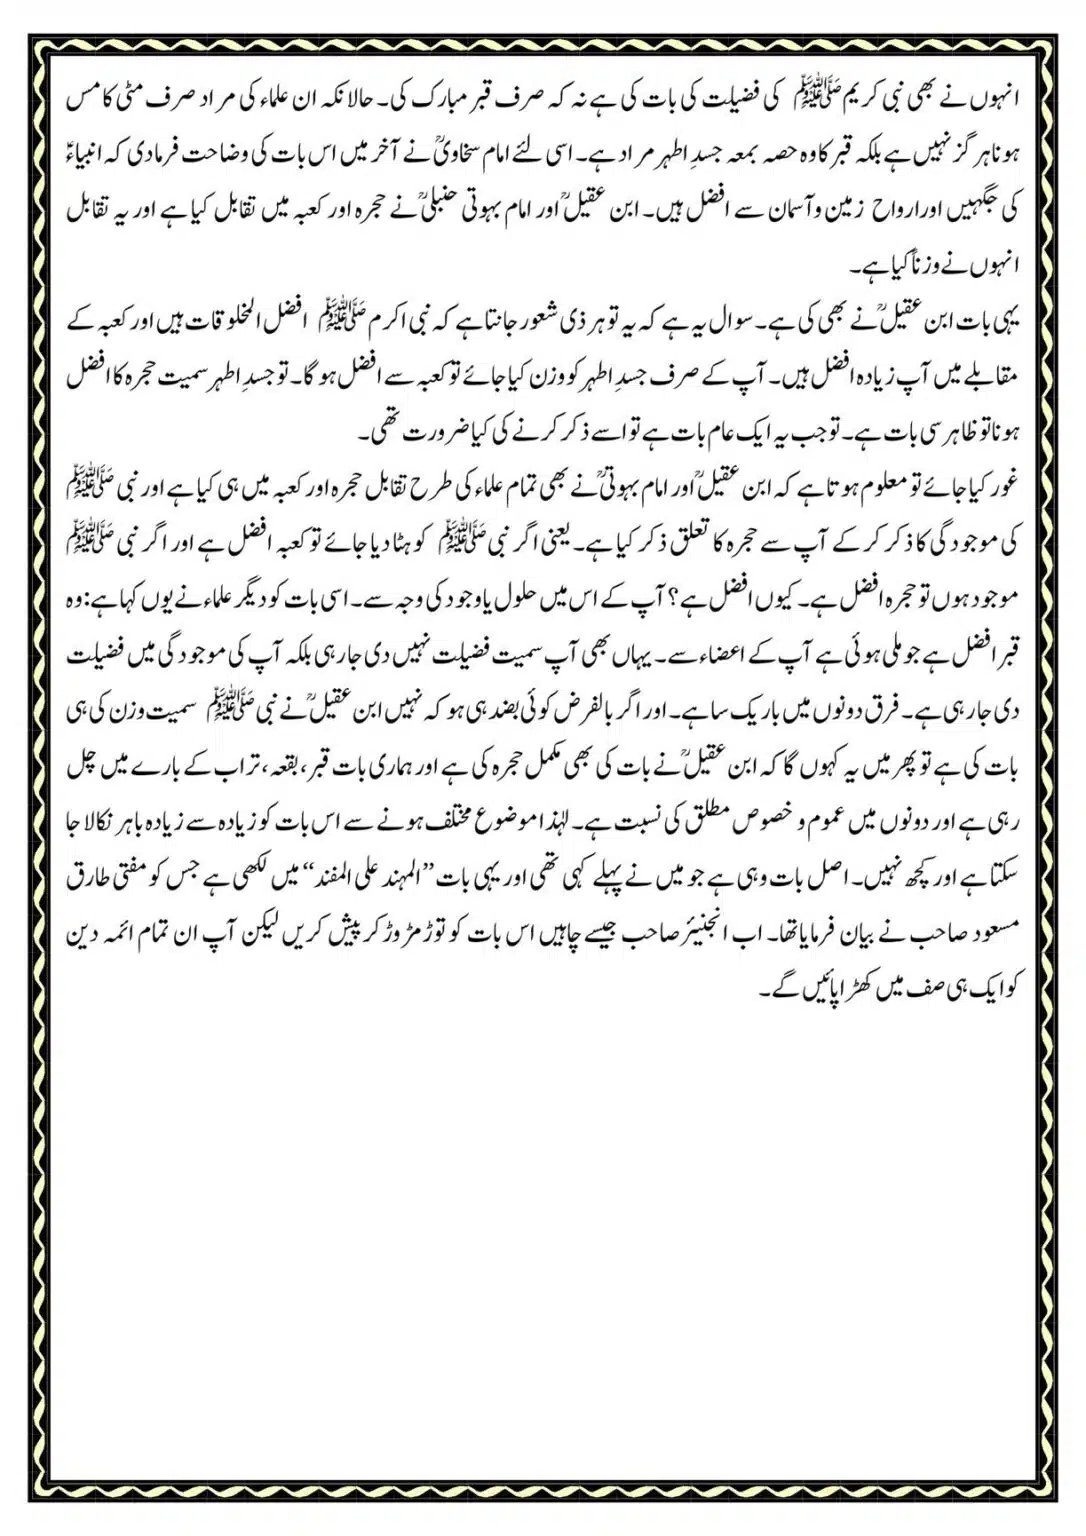 انہوں نے بھی نبی کریم ﷺ کی فضیلت کی بات کی ہے نہ کہ صرف قبر مبارک کی۔ حالانکہ ان علماء کی مراد صرف مٹی کا مس
ہونا ہرگز نہیں ہے بلکہ قبر کا وہ حصہ بمعہ جسدِ اطہر مراد ہے۔ اسی لئے امام سخاویؒ نے آخر میں اس بات کی وضاحت فرمادی کہ انبیاءؑ
کی جگہیں اور ارواح زمین و آسمان سے افضل ہیں۔ ابن عقیلؒ اور امام بہوتی حنبلیؒ نے حجرہ اور کعبہ میں تقابل کیا ہے اور یہ تقابل
انہوں نے وزناً کیا ہے۔
یہی بات ابن عقیلؒ نے بھی کی ہے۔ سوال یہ ہے کہ یہ تو ہر ذی شعور جانتا ہے کہ نبی اکرم ﷺ افضل المخلوقات ہیں اور کعبہ کے
مقابلے میں آپ زیادہ افضل ہیں۔ آپ کے صرف جسدِ اطہر کو وزن کیا جائے تو کعبہ سے افضل ہو گا۔ تو جسدِ اطہر سمیت حجرہ کا افضل
ہونا تو ظاہر سی بات ہے۔ تو جب یہ ایک عام بات ہے تو اسے ذکر کرنے کی کیا ضرورت تھی۔
غور کیا جائے تو معلوم ہوتا ہے کہ ابن عقیلؒ اور امام بہوتیؒ نے بھی تمام علماء کی طرح تقابل حجرہ اور کعبہ میں ہی کیا ہے اور نبی ﷺ
کی موجودگی کا ذکر کر کے آپ سے حجرہ کا تعلق ذکر کیا ہے۔ یعنی اگر نبی ﷺ کو ہٹا دیا جائے تو کعبہ افضل ہے اور اگر نبی ﷺ
موجود ہوں تو حجرہ افضل ہے۔ کیوں افضل ہے؟ آپ کے اس میں حلول یا وجود کی وجہ سے۔ اسی بات کو دیگر علماء نے یوں کہا ہے: وہ
قبر افضل ہے جو ملی ہوئی ہے آپ کے اعضاء سے۔ یہاں بھی آپ سمیت فضیلت نہیں دی جا رہی بلکہ آپ کی موجودگی میں فضیلت
دی جا رہی ہے۔ فرق دونوں میں باریک سا ہے۔ اور اگر بالفرض کوئی بضد ہی ہو کہ نہیں ابن عقیلؒ نے نبی ﷺ سمیت وزن کی ہی
بات کی ہے تو پھر میں یہ کہوں گا کہ ابن عقیلؒ نے بات کی بھی مکمل حجرہ کی ہے اور ہماری بات قبر، بقعہ، تراب کے بارے میں چل
رہی ہے اور دونوں میں عموم و خصوص مطلق کی نسبت ہے۔ لہٰذا موضوع مختلف ہونے سے اس بات کو زیادہ سے زیادہ باہر نکالا جا
سکتا ہے اور کچھ نہیں۔ اصل بات وہی ہے جو میں نے پہلے کہی تھی اور یہی بات ”المہند علی المفند“ میں لکھی ہے جس کو مفتی طارق
مسعود صاحب نے بیان فرمایا تھا۔ اب انجنیئر صاحب جیسے چاہیں اس بات کو توڑ مڑوڑ کر پیش کریں لیکن آپ ان تمام ائمہ دین
کو ایک ہی صف میں کھڑا پائیں گے۔